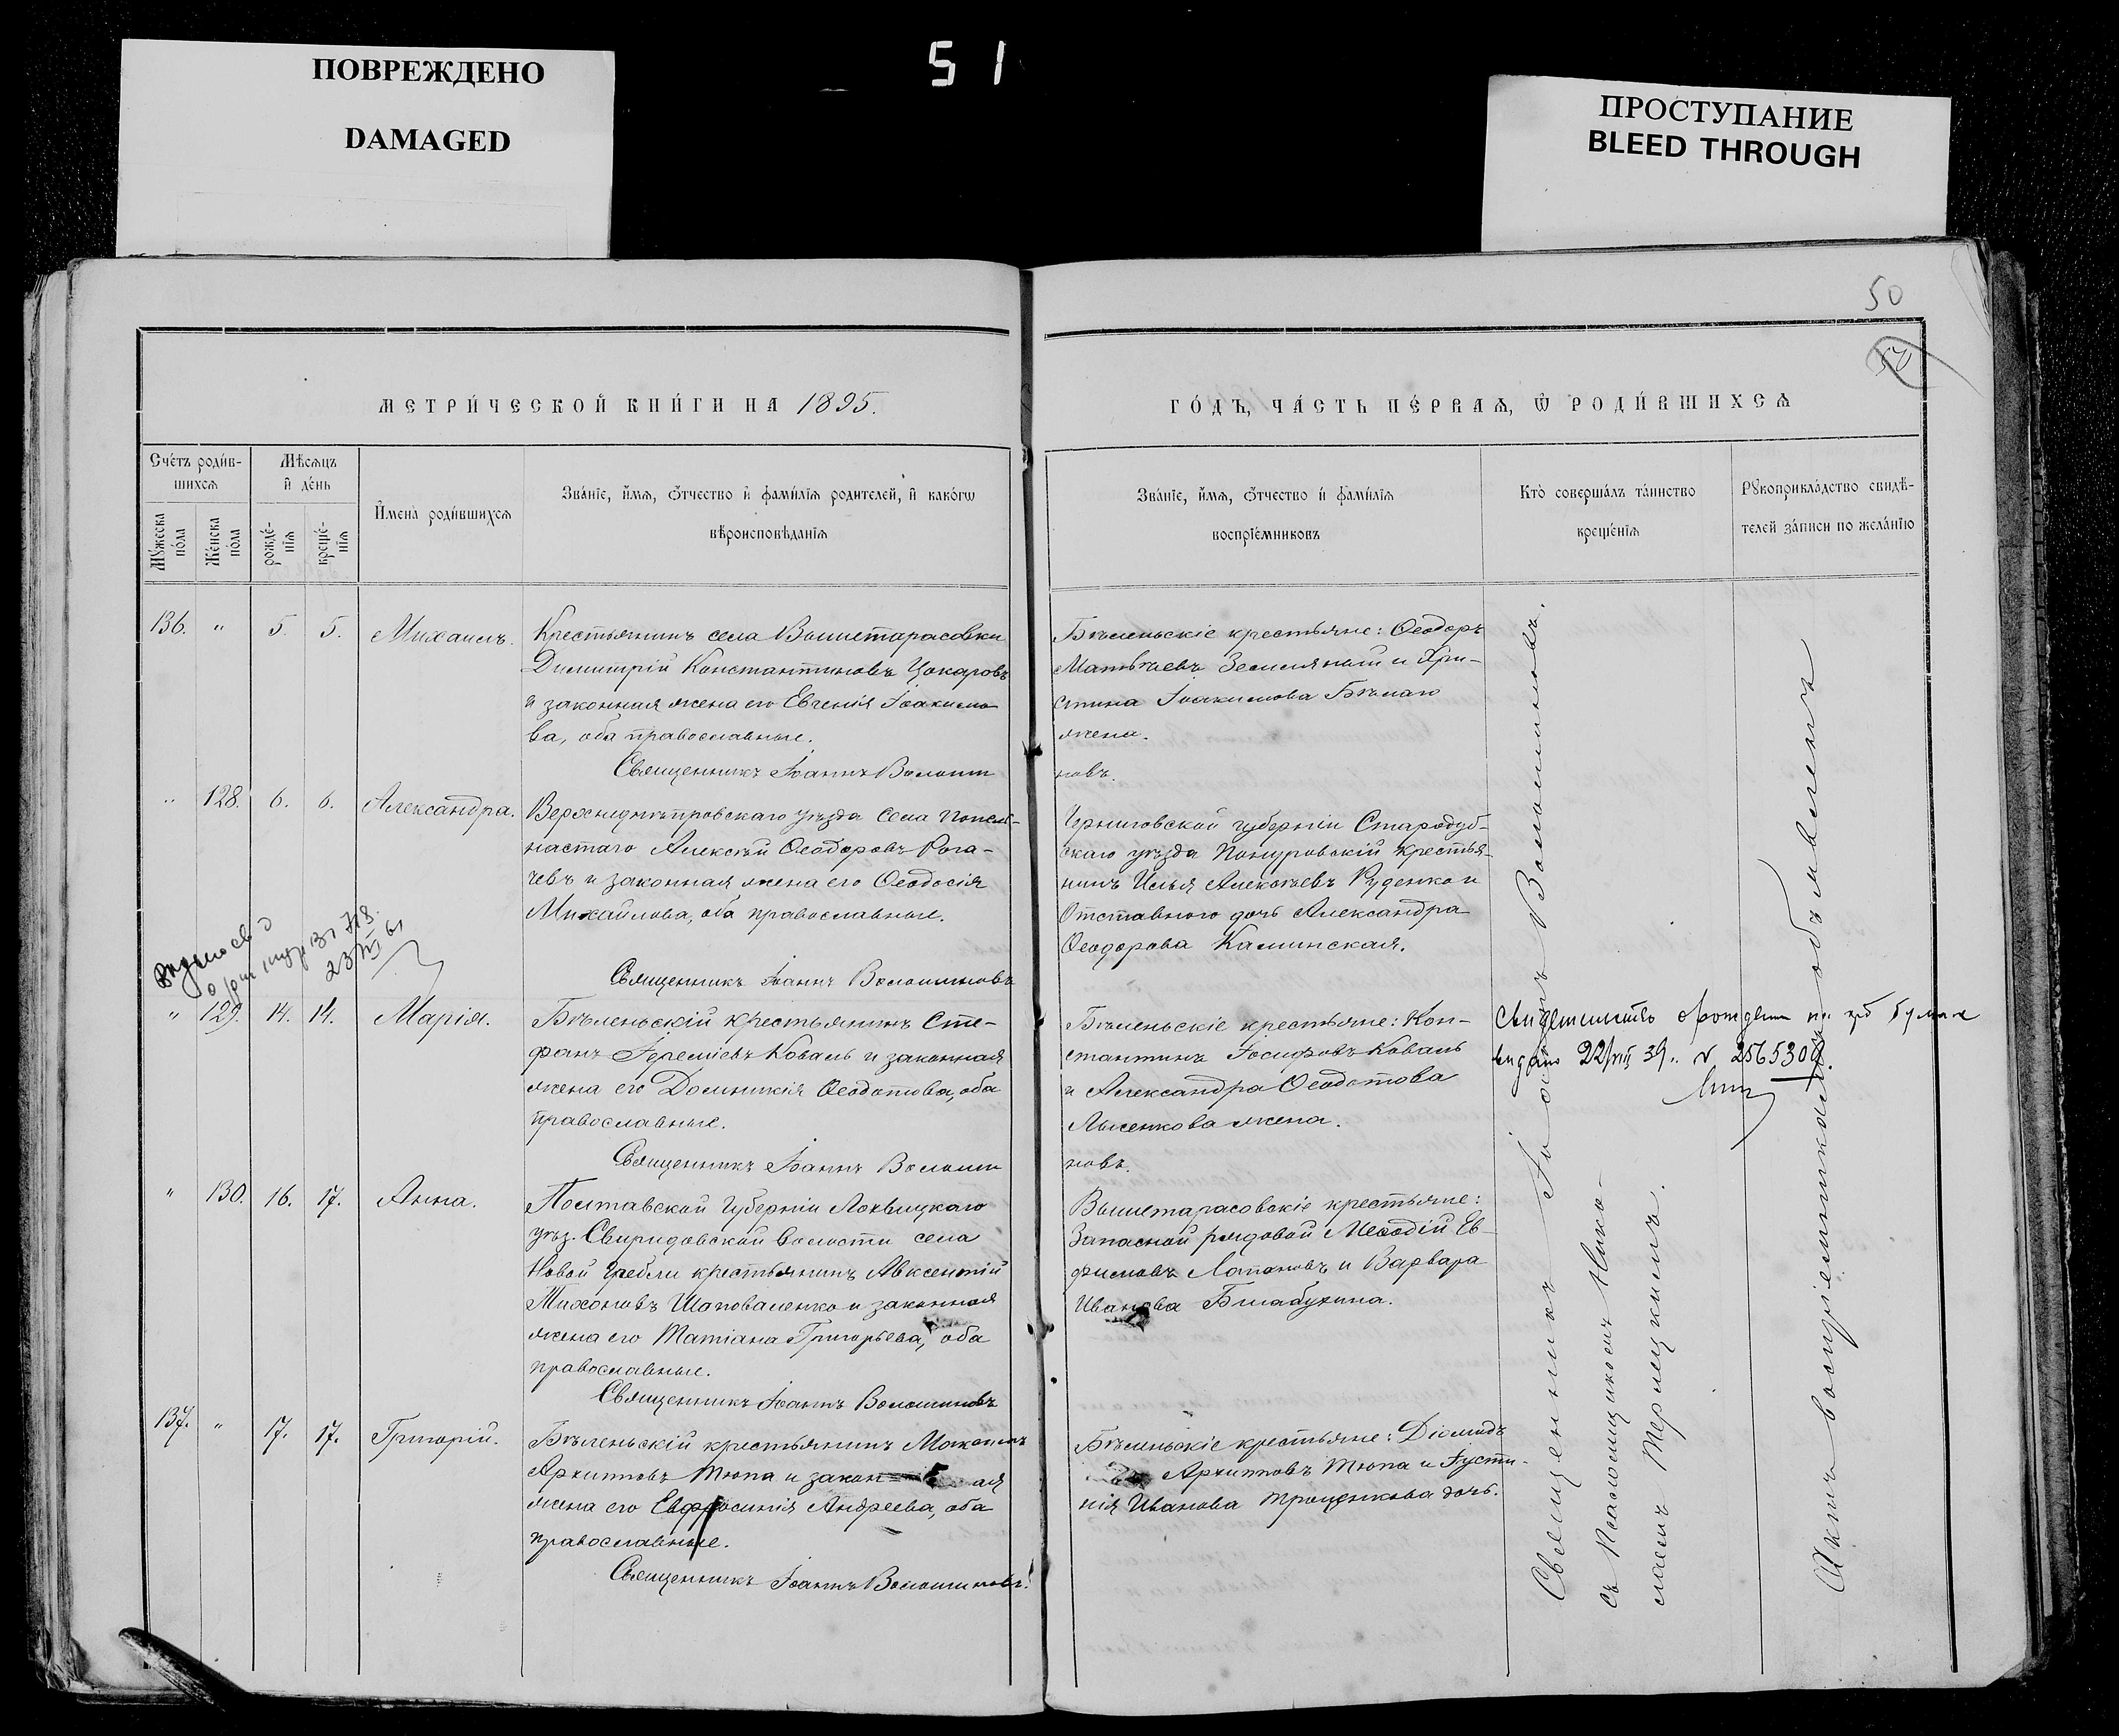 ПОВРЕЖДЕНО
DAMAGED
51
ПРОСТУПАНИЕ
BLEED THROUGH
50
50
МЕТРИ́ЧЕСКОЙ КНИ́ГИ НА 1895.
ГО́ДЪ, ЧА́СТЬ ПЕ́РВАѦ, Ѡ҆ РОДИ́ВШИХСѦ
Сче́тъ роди́в-
шихсѧ
Мꙋ́жеска по́ла
Же́нска по́ла
Мѣ́сѧцъ и҆ де́нь
рожде́-нїѧ
креще́-нїѧ
И҆мена̀ роди́вшихсѧ
Зва́нїе, и҆́мѧ, ѻ҆́тчество и҆ фами́лїѧ родителей, и҆ како́гѡ
вѣроисповѣ́данїѧ
Зва́нїе, и҆́мѧ, ѻ҆́тчество и҆ фами́лїѧ
воспрїе́мниковъ
Кто̀ соверша́лъ та́инство
креще́нїѧ
Рꙋкоприкла́дство свидѣ́-
телей за́писи по жела́нїю
136. " 5. 5. Михаилъ.
Крестьянинъ села Вышетарасовки
Димитрій Константиновъ Цокаровъ
и законная жена его Евгенія Іоакимо-
ва, оба православные.
Священникъ Іоаннъ Волошиновъ.
Бѣленьскіе крестьяне: Ѳеодоръ
Матвѣевъ Земляный и Хри-
стина Іоакимова Бѣлаго
жена.
" 128. 6. 6. Александра.
Верхнеднѣпровскаго уѣзда села Попель-
настаго Алексѣй Ѳеодоровъ Рога-
чевъ и законная жена его Ѳеодосія
Михайлова, оба православные.
Священникъ Іоаннъ Волошиновъ
Черниговской губерніи Стародуб-
скаго уѣзда Понуровскій крестья-
нинъ Илья Алексѣевъ Руденко и
Отставного дочь Александра
Ѳеодорова Каминская.
" 129. 14. 14. Марія.
Бѣленьскій крестьянинъ Сте-
фанъ Іереміевъ Коваль и законная
жена его Домникія Ѳеодотова, оба
православные.
Священникъ Іоаннъ Волошиновъ.
Бѣленьскіе крестьяне: Кон-
стантинъ Іосифовъ Коваль
и Александра Ѳеодотова
Лысенкова жена.
выдано 22/VIII 39.. N 2565306.
" 130. 16. 17. Анна.
Полтавской Губерніи Лохвицкаго
уѣз. Свиридовской волости села
Новой Гребли крестьянинъ Авксентій
Тихоновъ Шаповаленко и законная
жена его Татіана Григорьева, оба
православные.
Священникъ Іоаннъ Волошиновъ
Вышетарасовскіе крестьяне:
Запасной рядовой Меѳодій Ев-
фимовъ Лотановъ и Варвара
Иванова
137. " 17. 17. Григорій.
Бѣленьскій крестьянинъ
Архиповъ Тюпа и закон ая
жена его Евфросинія Андреева, оба
православные.
Священникъ Іоаннъ Волошиновъ.
Бѣленьскіе крестьяне: Діомидъ
Архиповъ Тюпа и Іусти-
нія Иванова Троценкова дочь.
Священникъ Іоаннъ Волошиновъ.
съ Псаломщикомъ Нико-
лаемъ Терлецкимъ.
Актъ воспріемникамъ объявленъ